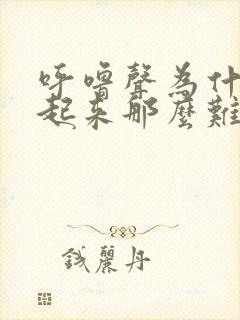 呼嚕聲為什
起來那麼難
錢麗丹